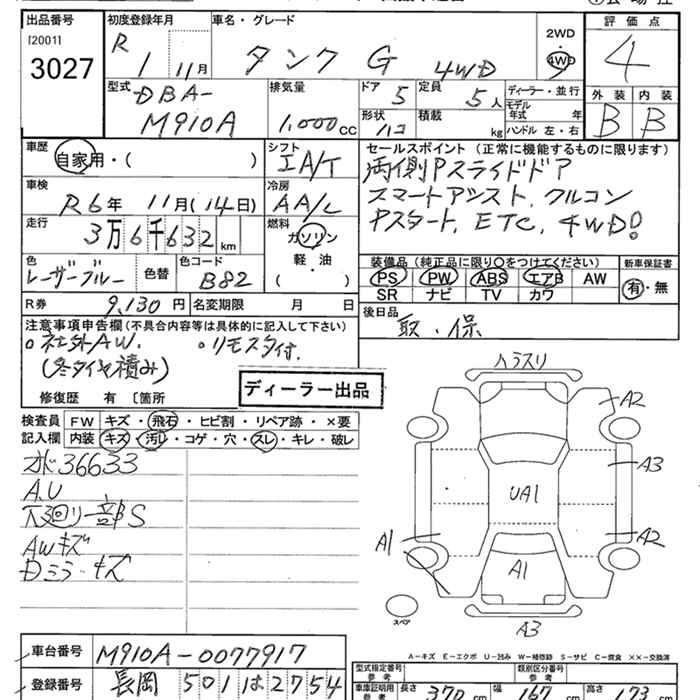 出品番号 初度登録年月 車名・グレード 評価点
[2001] 3027
R 1 11月
タンク G 4WD
2WD・4WD
4
型式 DBA-M910A
排気量 1,000cc
ドア 5 定員 5人
ディーラー・並行
形状 ハコ 積載 kg
モデル年式 年
ハンドル 左・右
外装 内装
B B
車歴 自家用・( )
シフト IA/T
セールスポイント(正常に機能するものに限ります)
両側Pスライドドア
スマートアシスト, クルコン
Pスタート, ETC, 4WD!
車検 R6年 11月(14日)
冷房 AA/C
走行 3万6千632km
燃料 ガソリン 軽・油 ( )
色 レーザーブルー 色替 色コード B82
装備品(純正品に限り○をつけてください) 新車保証書
PS PW ABS エアB AW 有・無
SR ナビ TV カワ
R券 9,130円 名変期限 月 日
後日品 取・保
注意事項申告欄(不具合内容等は具体的に記入して下さい)
○社外AW. ○リモスタ付.
(冬タイヤ積み)
修復歴 有 〔箇所
ディーラー出品
検査員記入欄
FW キズ・飛石・ヒビ割・リペア跡・×要
内装 キズ・汚レ・コゲ・穴・スレ・キレ・破レ
オド36633
A.U
下廻り一部S
AWキズ
Dミラーキズ
ハラスリ
A2
A3
UA1
A2
A1
A1
スペア
A3
A-キズ E-エクボ U-凹み W-補修跡 S-サビ C-腐食 ××-交換済
車台番号 M910A-0077917
登録番号 長岡 501 は 2754
型式指定番号 参考 類別区分番号 参考
車庫証明用 参考 長さ 370cm 幅 167cm 高さ 173cm